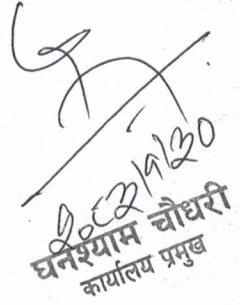 २०८२।१।३०
घनश्याम चौधरी
कार्यालय प्रमुख